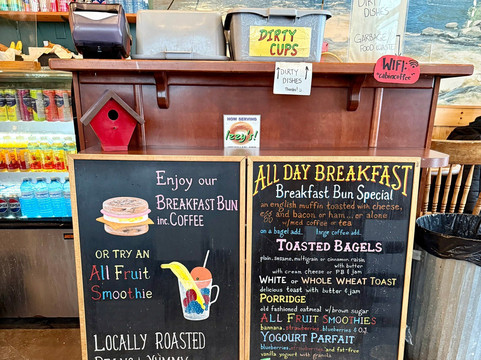 DIRTY
DISHES
GARBAGE
DIRTY
CUPS
WIFI:
DIRTY
DISHES
NOW SERVING
Izzy's!
Enjoy our
BREAKFAST BUN
inc. COFFEE
OR TRY AN
All Fruit
Smoothie
LOCALLY ROASTED
ALL DAY BREAKFAST
Breakfast Bun Special
an english muffin toasted with cheese,
egg and bacon or ham... or alone
w/med coffee or tea
on a bagel add. large coffee add.
TOASTED BAGELS
plain, sesame, multigrain or cinnamon raisin,
with butter
with cream cheese or PB & jam
WHITE or WHOLE WHEAT TOAST
delicious toast with butter & jam
PORRIDGE
old fashioned oatmeal w/brown sugar
ALL FRUIT SMOOTHIES
banana, strawberries, blueberries & O.J.
YOGOURT PARFAIT
blueberries, strawberries and fat-free
vanilla yogurt with granola